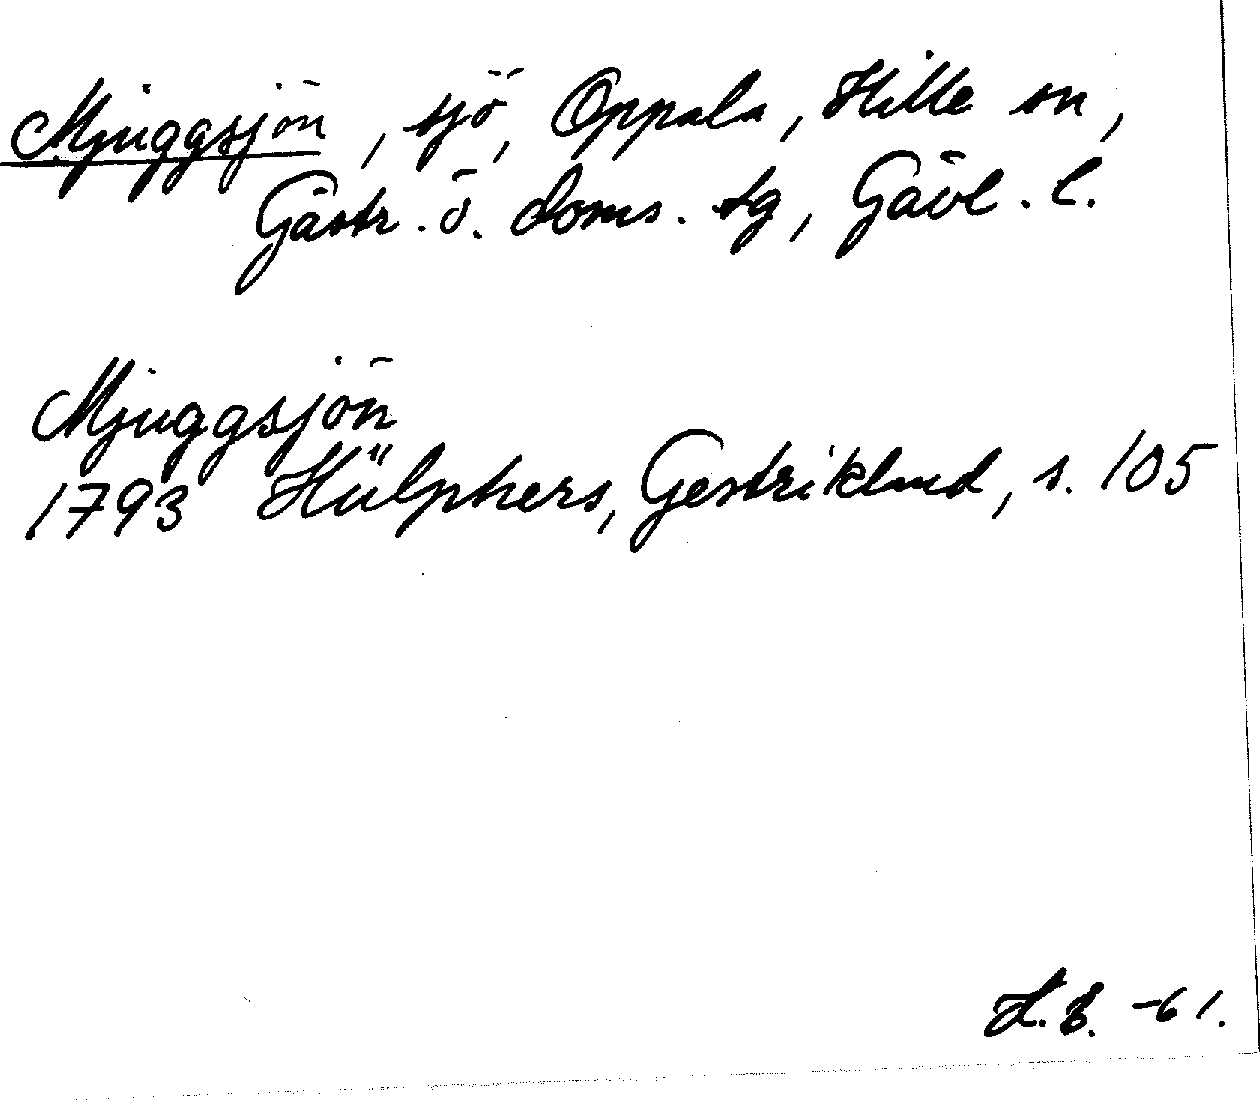 Mjuggsjön, sjö, Oppala, Hille sn,
Gästr. ö. doms. tg, Gävl. l.
Mjuggsjön
1793 Hülphers, Gestrikland, s. 105
-61.